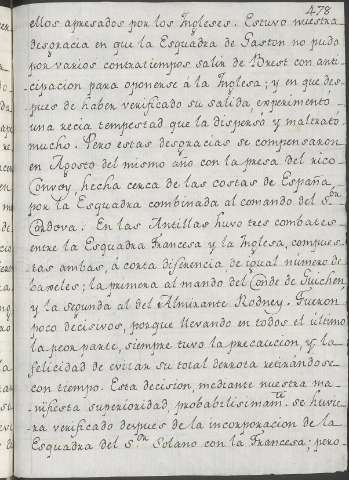 478
ellos apresados por los Ingleses. Estuvo nuestra
desgracia en que la Esquadra de Gaston no pudo
por varios contratiempos salir de Brest con anti-
-cipacion para oponerse á la Inglesa; y en que des-
-pues de haber verificado su salida experimentó
una recia tempestad que la dispersó y maltrató
mucho. Pero estas desgracias se compensaron
en Agosto del mismo año con la presa del rico
Convoy hecha cerca de las costas de España
por la Esquadra combinada al comando del S.or
Córdova. En las Antillas huvo tres combates
entre la Esquadra Francesa y la Inglesa, compues-
tas ambas, á corta diferencia de igual numero de
baxeles; la primera al mando del Conde de Guichen
y la segunda al del Almirante Rodney. Fueron
poco decisivos, porque llevando en todos el último
la peor parte, siempre tuvo la precaucion, y la
felicidad de evitar su total derrota retirándose
con tiempo. Esta decision, mediante nuestra ma-
-nifiesta superioridad, probabilisimam.te se huvie-
ra verificado despues de la incorporacion de la
Esquadra del S.or Solano con la Francesa; pero